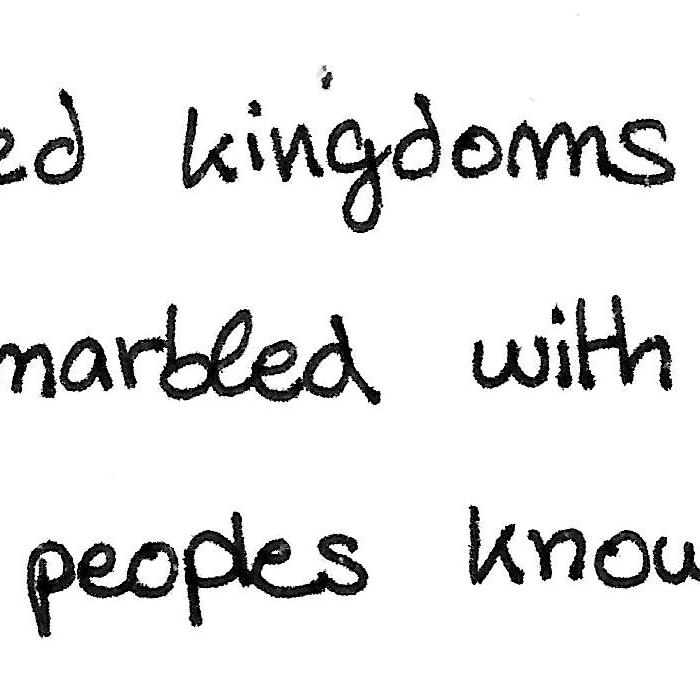 ed kingdoms
marbled with
peoples know